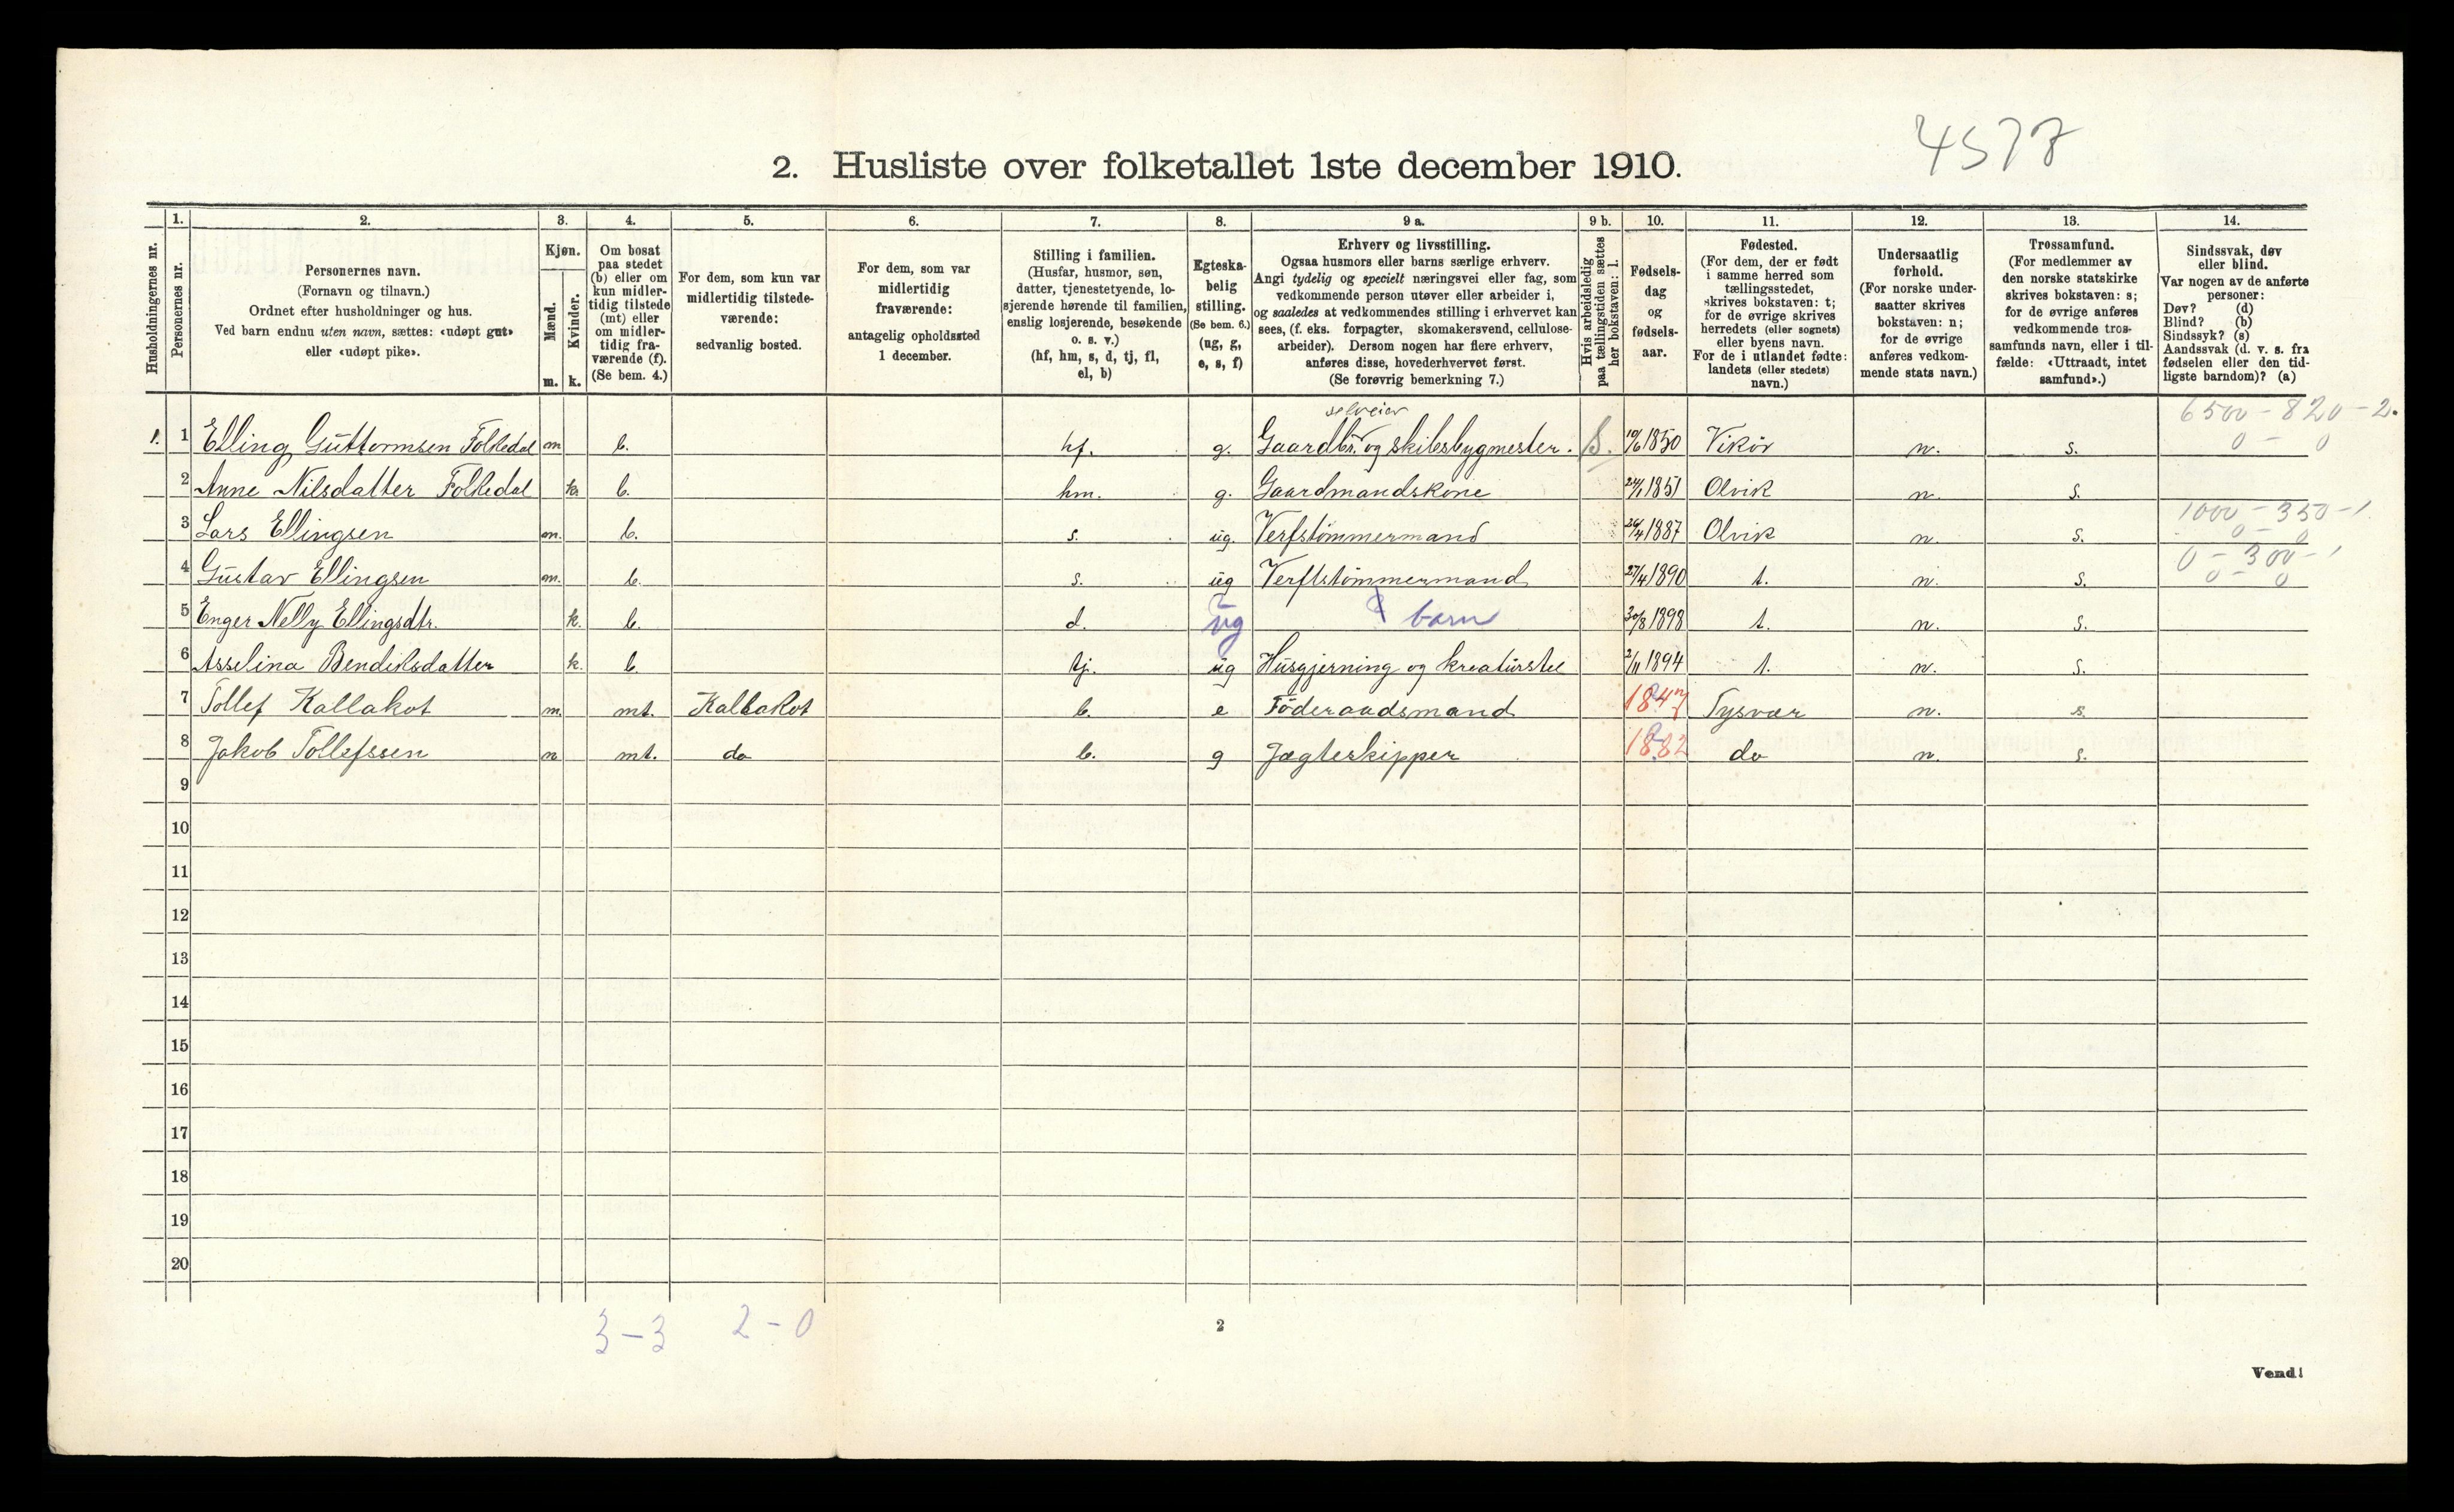 4577
2. Husliste over folketallet 1ste december 1910.
Husholdningernes nr.
1. Personernes nr.
2. Personernes navn. (Fornavn og tilnavn.) Ordnet efter husholdninger og hus. Ved barn endnu uten navn, sættes: «udøpt gut» eller «udøpt pike».
3. Kjøn. Mænd. m. Kvinder. k.
4. Om bosat paa stedet (b) eller om kun midlertidig tilstede (mt) eller om midlertidig fraværende (f). (Se bem. 4.)
5. For dem, som kun var midlertidig tilstedeværende: sedvanlig bosted.
6. For dem, som var midlertidig fraværende: antagelig opholdssted 1 december.
7. Stilling i familien. (Husfar, husmor, søn, datter, tjenestetyende, losjerende hørende til familien, enslig losjerende, besøkende o. s. v.) (hf, hm, s, d, tj, fl, el, b)
8. Egteskabelig stilling. (Se bem. 6.) (ug, g, e, s, f)
9 a. Erhverv og livsstilling. Ogsaa husmors eller barns særlige erhverv. Angi tydelig og specielt næringsvei eller fag, som vedkommende person utøver eller arbeider i, og saaledes at vedkommendes stilling i erhvervet kan sees, (f. eks. forpagter, skomakersvend, cellulosearbeider). Dersom nogen har flere erhverv, anføres disse, hovederhvervet først. (Se forøvrig bemerkning 7.)
9 b. Hvis arbeidsledig paa tællingstiden sættes her bokstaven: l.
10. Fødselsdag og fødselsaar.
11. Fødested. (For dem, der er født i samme herred som tællingsstedet, skrives bokstaven: t; for de øvrige skrives herredets (eller sognets) eller byens navn. For de i utlandet fødte: landets (eller stedets) navn.)
12. Undersaatlig forhold. (For norske undersaatter skrives bokstaven: n; for de øvrige anføres vedkommende stats navn.)
13. Trossamfund. (For medlemmer av den norske statskirke skrives bokstaven: s; for de øvrige anføres vedkommende trossamfunds navn, eller i tilfælde: «Uttraadt, intet samfund».)
14. Sindssvak, døv eller blind. Var nogen av de anførte personer: Døv? (d) Blind? (b) Sindssyk? (s) Aandssvak (d. v. s. fra fødselen eller den tidligste barndom)? (a)
selveier 6500 - 820 - 2.
1. 1 Elling Guttormsen Folkedal m b. hf. g. Gaardbr. og skibsbygmester. 10/6 1850 Vikör n. s. 0 - 0
2 Anne Nilsdatter Folkedal k b. hm. g. Gaardmandskone 24/1 1851 Olvik n. s.
1000 - 350 - 1
3 Lars Ellingsen m. b. s. ug. Verfstömmermand 26/4 1887 Olvik n. s. 0 - 0
0 - 300 - 1
4 Gustav Ellingsen m. b. s. ug Verftstömmermand 27/4 1890 t. n. s. 0 - 0
5 Enger Nelly Ellingsdtr. k. b. d. ug barn 30/8 1898 t. n. s.
6 Asselina Bendiksdatter k. b. tj. ug Husgjerning og kreaturstel 2/11 1894 t. n. s.
7 Tollef Kallakot m. mt. Kallakot b. e Föderaadsmand 1847 Tysvær n. s.
8 Jakob Tollefssen m mt. do b. g Jægteskipper 1882 do n. s.
9
10
11
12
13
14
15
16
17
18
19
20
3 - 3 2 - 0
2
Vend!